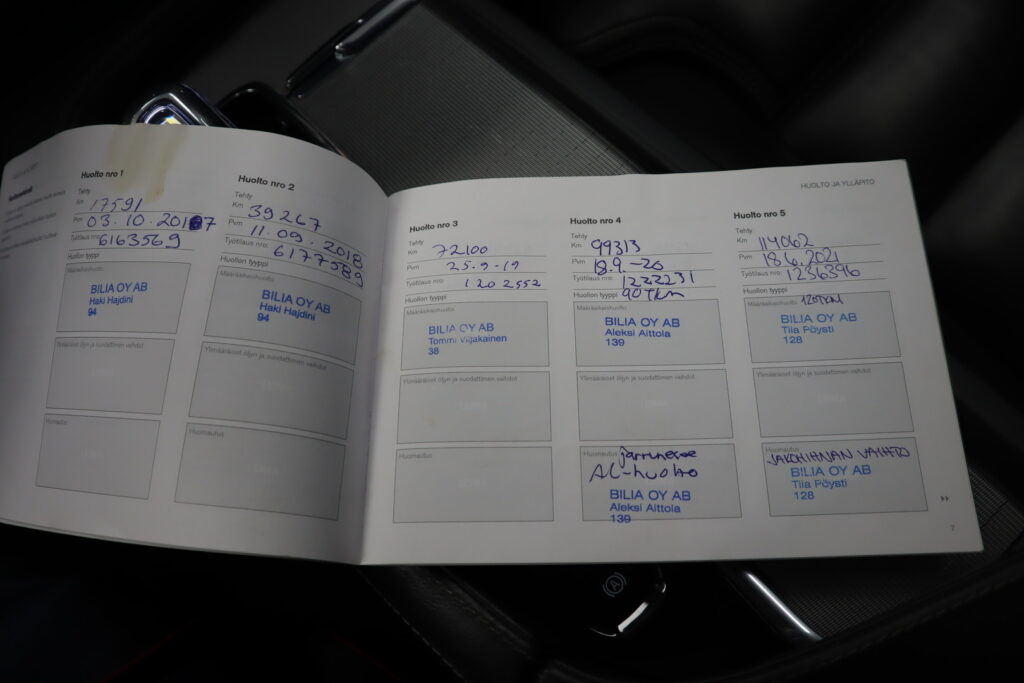 Huolto nro 1
Tehty
Km 17591
Pvm 03.10.2017
Työtilaus nro: 6163569
Huollon tyyppi
Määräaikaishuolto
BILIA OY AB
Haki Hajdini
94
Ylimääräiset öljyn ja suodattimen vaihdot
LEIMA
Huomautus
LEIMA
Huolto nro 2
Tehty
Km 39267
Pvm 11.09.2018
Työtilaus nro: 6177589
Huollon tyyppi
Määräaikaishuolto
BILIA OY AB
Haki Hajdini
94
Ylimääräiset öljyn ja suodattimen vaihdot
LEIMA
Huomautus
LEIMA
HUOLTO JA YLLÄPITO
Huolto nro 3
Tehty
Km 72100
Pvm 25.9-19
Työtilaus nro: 1202552
Huollon tyyppi
Määräaikaishuolto
BILIA OY AB
Tommi Viljakainen
38
Ylimääräiset öljyn ja suodattimen vaihdot
LEIMA
Huomautus
LEIMA
Huolto nro 4
Tehty
Km 99313
Pvm 18.9.-20
Työtilaus nro: 1222231
Huollon tyyppi 90Tkm
Määräaikaishuolto
BILIA OY AB
Aleksi Aittola
139
Ylimääräiset öljyn ja suodattimen vaihdot
LEIMA
Huomautus jarruneste
AC-huolto
BILIA OY AB
Aleksi Aittola
139
Huolto nro 5
Tehty
Km 114062
Pvm 18.6.2021
Työtilaus nro: 1236396
Huollon tyyppi
Määräaikaishuolto 120TKM
BILIA OY AB
Tiia Pöysti
128
Ylimääräiset öljyn ja suodattimen vaihdot
LEIMA
Huomautus
JAKOHIHNAN VAIHTO
BILIA OY AB
Tiia Pöysti
128
7